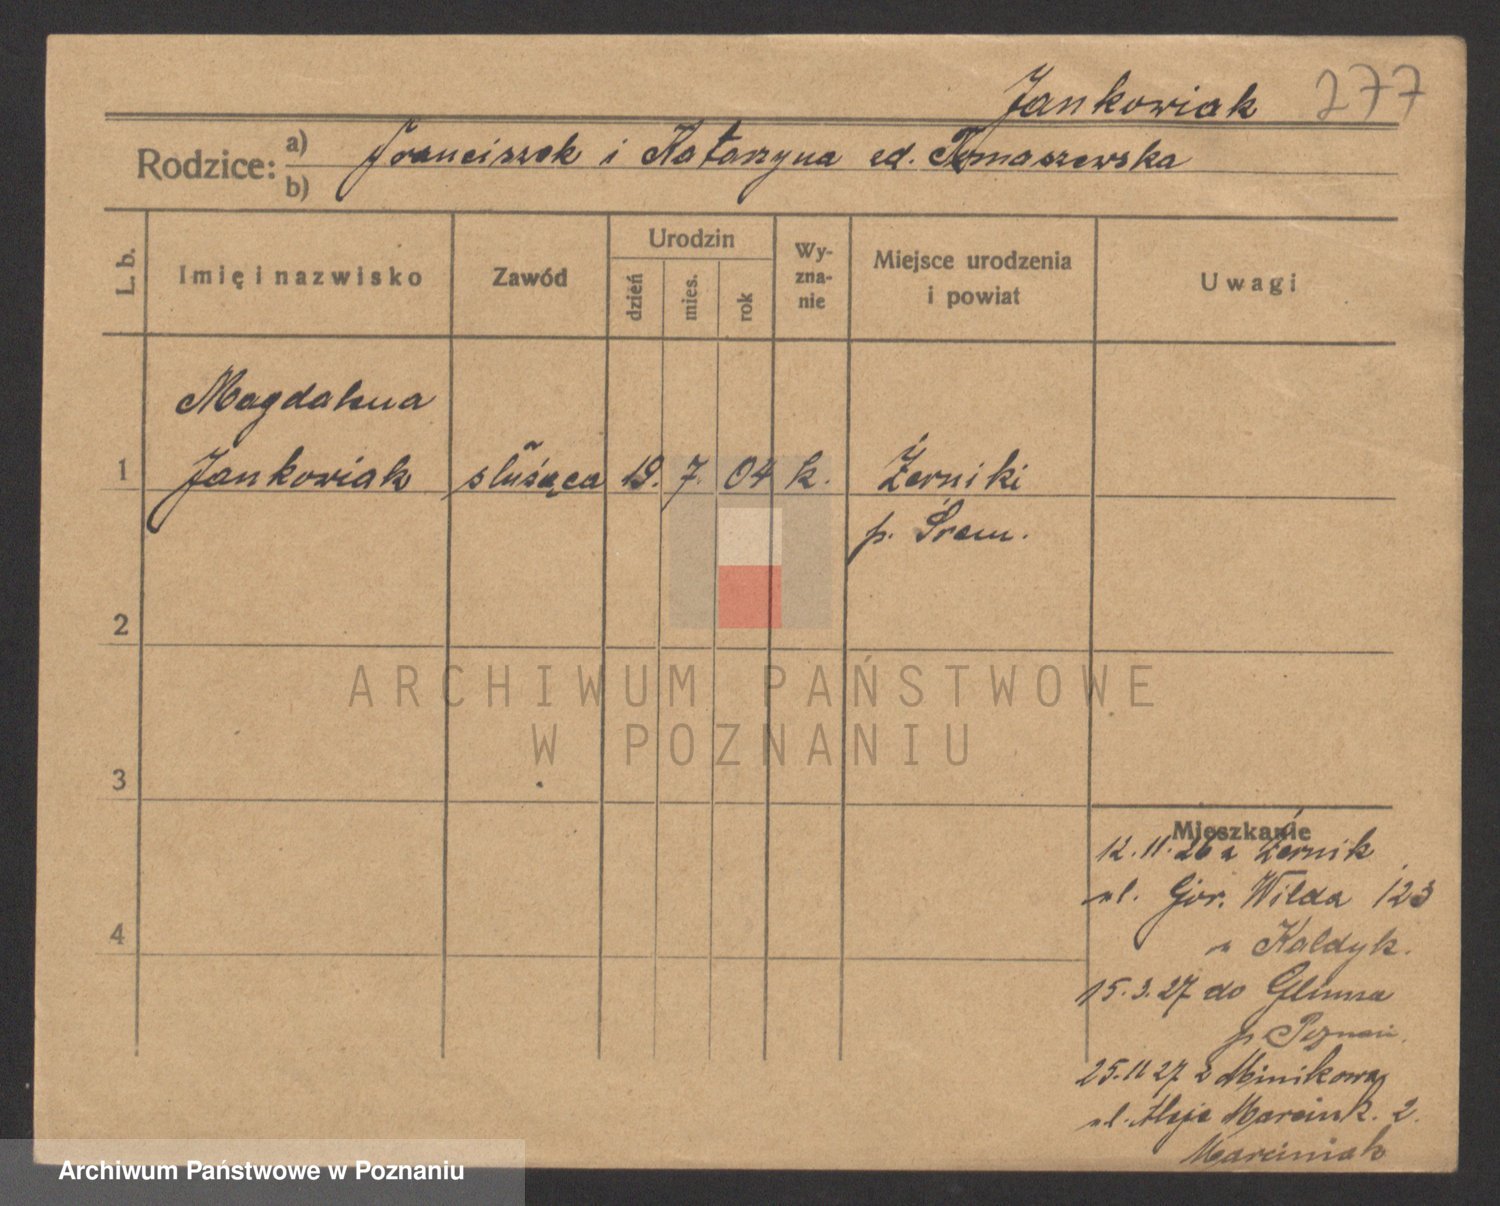 Jankowiak 277
Rodzice: a) Franciszek i Katarzyna zd. Tomaszewska
b)
L. b.
Imię i nazwisko
Zawód
Urodzin
dzień
mies.
rok
Wy-
zna-
nie
Miejsce urodzenia
i powiat
Uwagi
Magdalena
1 Jankowiak służąca 19. 7. 04 k. Żerniki
p. Śrem.
2
3
4
ARCHIWUM PAŃSTWOWE
W POZNANIU
Mieszkanie
12.11.26 z Żernik
ul. Gór. Wilda 123
u Kaldyk.
15.3.27 do Gluszna
p. Poznań.
25.11 27 z Minikowa
ul. Aleje Marcink. 2.
Marciniak
Archiwum Państwowe w Poznaniu